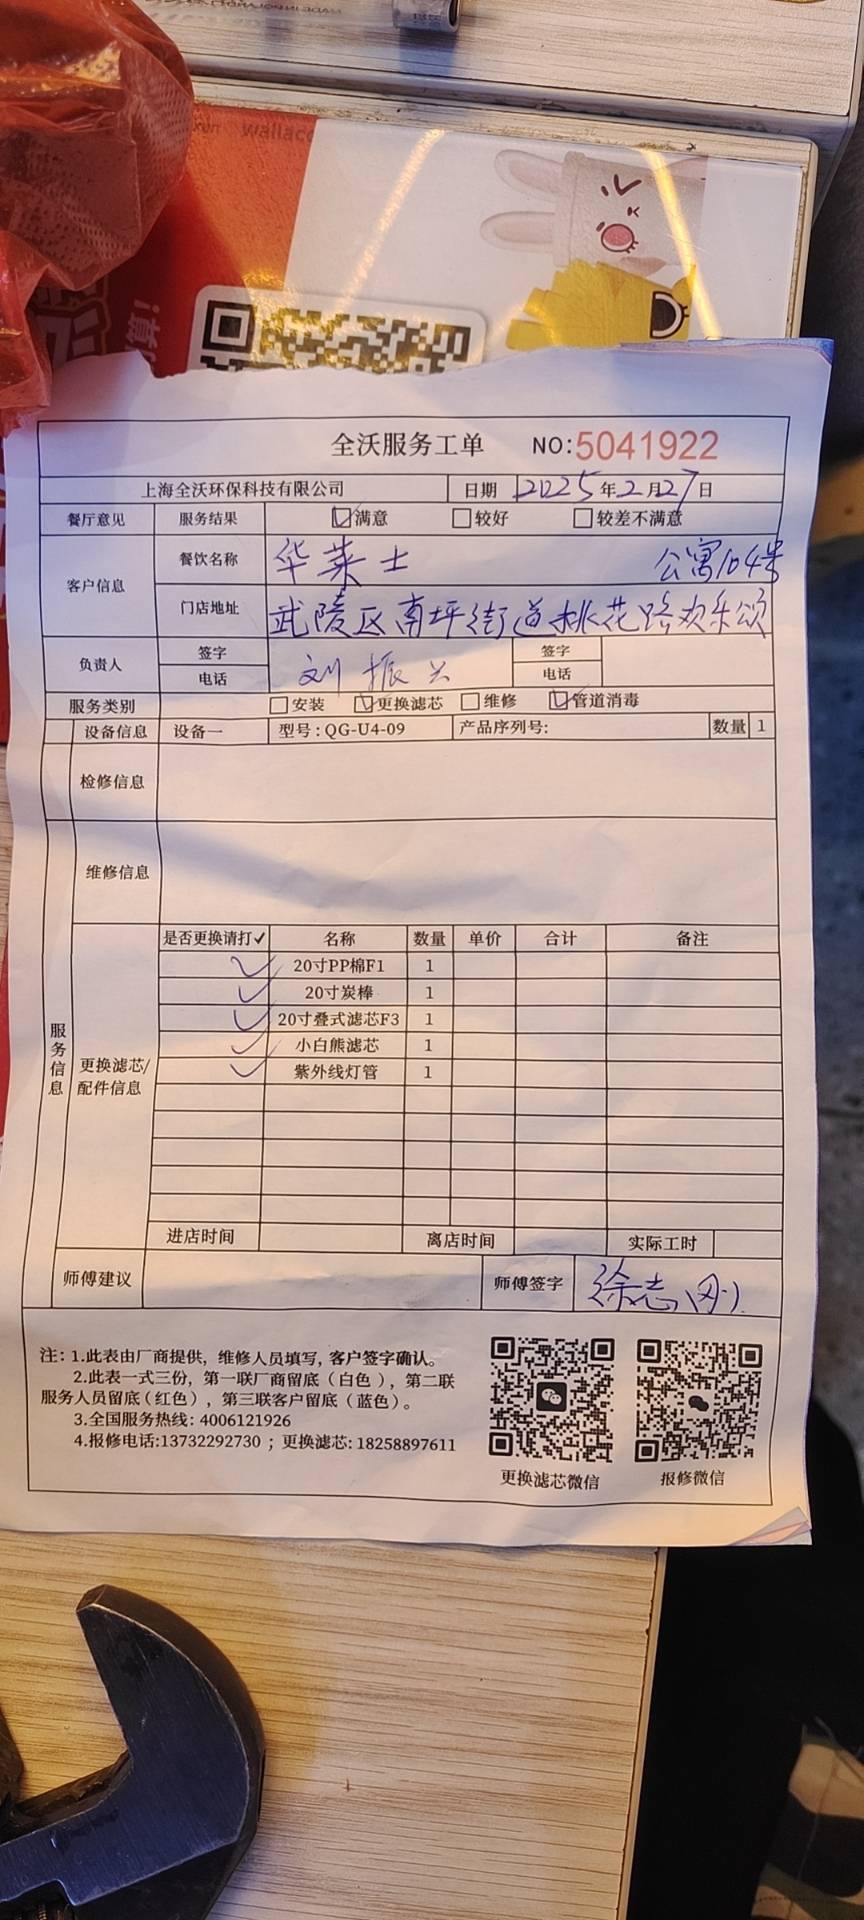 wallace
全沃服务工单 NO:5041922
上海全沃环保科技有限公司 日期 2025年2月27日
餐厅意见 服务结果 ☑满意 □较好 □较差不满意
客户信息 餐饮名称 华莱士 公寓104号
门店地址 武陵区南坪街道桃花路欢乐颂
负责人 签字 刘振兴 签字
电话 电话
服务类别 □安装 ☑更换滤芯 □维修 ☑管道消毒
设备信息 设备一 型号:QG-U4-09 产品序列号: 数量 1
检修信息
维修信息
服务信息
更换滤芯/配件信息
是否更换请打✓ 名称 数量 单价 合计 备注
✓ 20寸PP棉F1 1
✓ 20寸炭棒 1
✓ 20寸叠式滤芯F3 1
✓ 小白熊滤芯 1
✓ 紫外线灯管 1
进店时间 离店时间 实际工时
师傅建议 师傅签字 徐志刚
注: 1.此表由厂商提供, 维修人员填写, 客户签字确认。
2.此表一式三份, 第一联厂商留底 (白色), 第二联
服务人员留底(红色), 第三联客户留底 (蓝色)。
3.全国服务热线: 4006121926
4.报修电话:13732292730 ; 更换滤芯: 18258897611
更换滤芯微信 报修微信